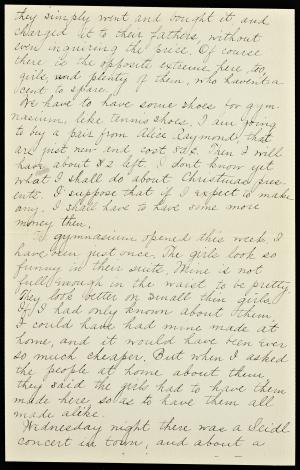 they simply went and bought it, and
charged it to their fathers, without
even inquiring the price. Of course
there is the opposite extreme here, too,
girls, and plenty of them, who haven't a
cent to spare.
We have to have some shoes for gym-
nasium, like tennis shoes. I am going
to buy a pair from Alice Raymond, that
are just new and cost Then I will
have about $2 left. I don't know yet
what I shall do about Christmas pres-
ents. I suppose that if I expect to make
any, I shall have to have some more
money then.
gymnasium opened this week. I
have been just once. The girls look so
funny in their suits. Mine is not
full enough in the waist to be pretty.
They look better on small thin girls.
If I had only known about them,
I could have had mine made at
home, and it would have been ever
so much cheaper. But when I asked
the people at home about them,
they said the girls had to have them
made here, so as to have them all
made alike.
Wednesday night there was a Seidl
concert in town, and about a